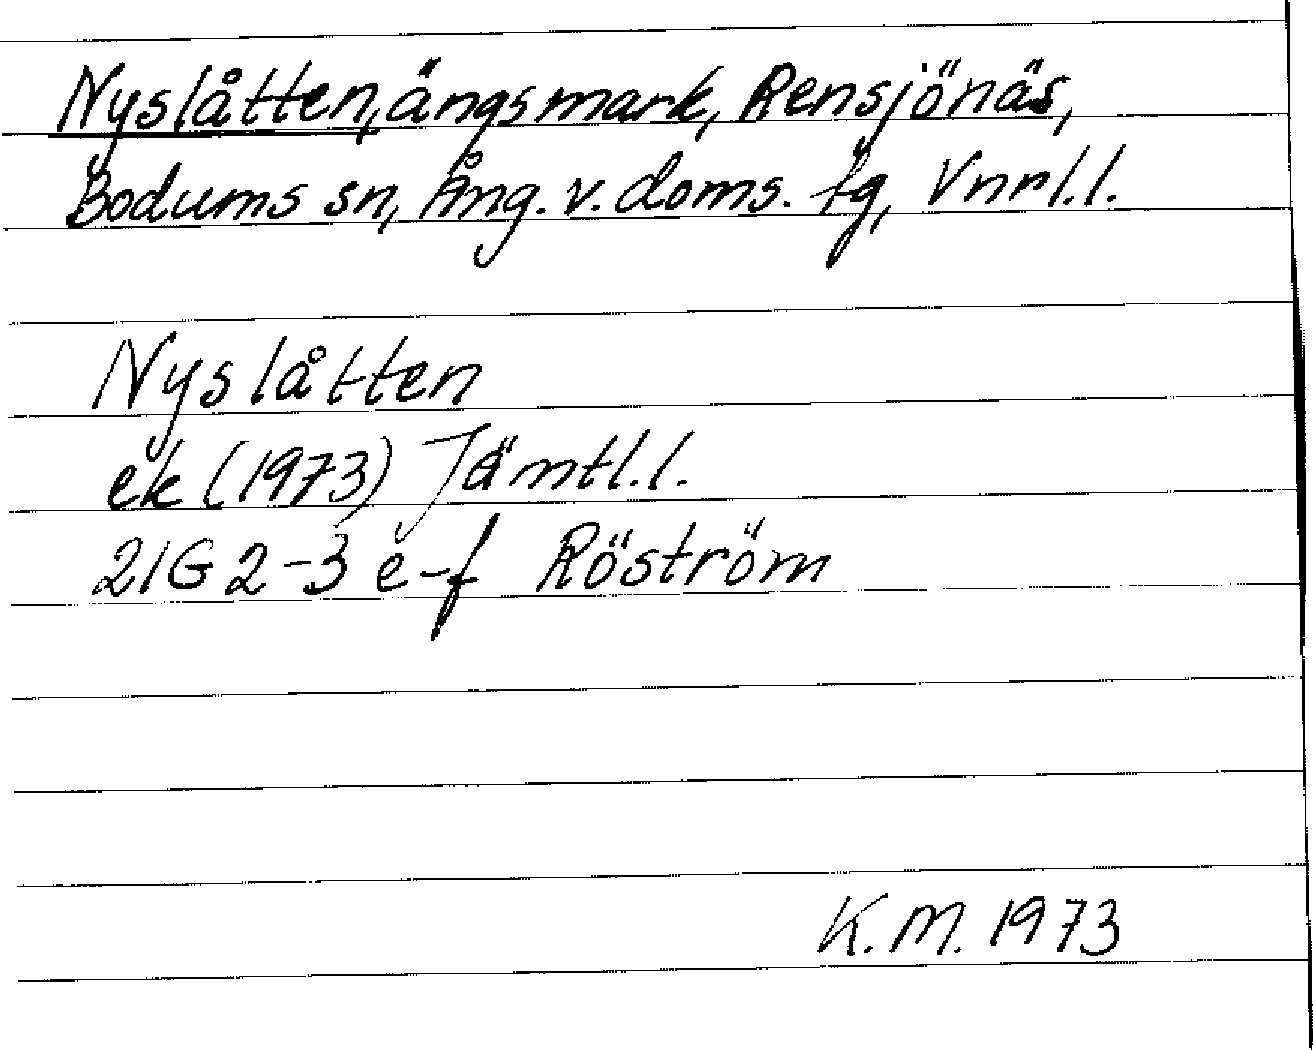 Nyslåtten, ängsmark, Rensjönäs,
Bodums sn, Ång. v. doms. tg, Vnrl.l.
Nyslåtten
ek (1973) Jämtl.l.
21G 2-3 e-f Röström
K.M. 1973